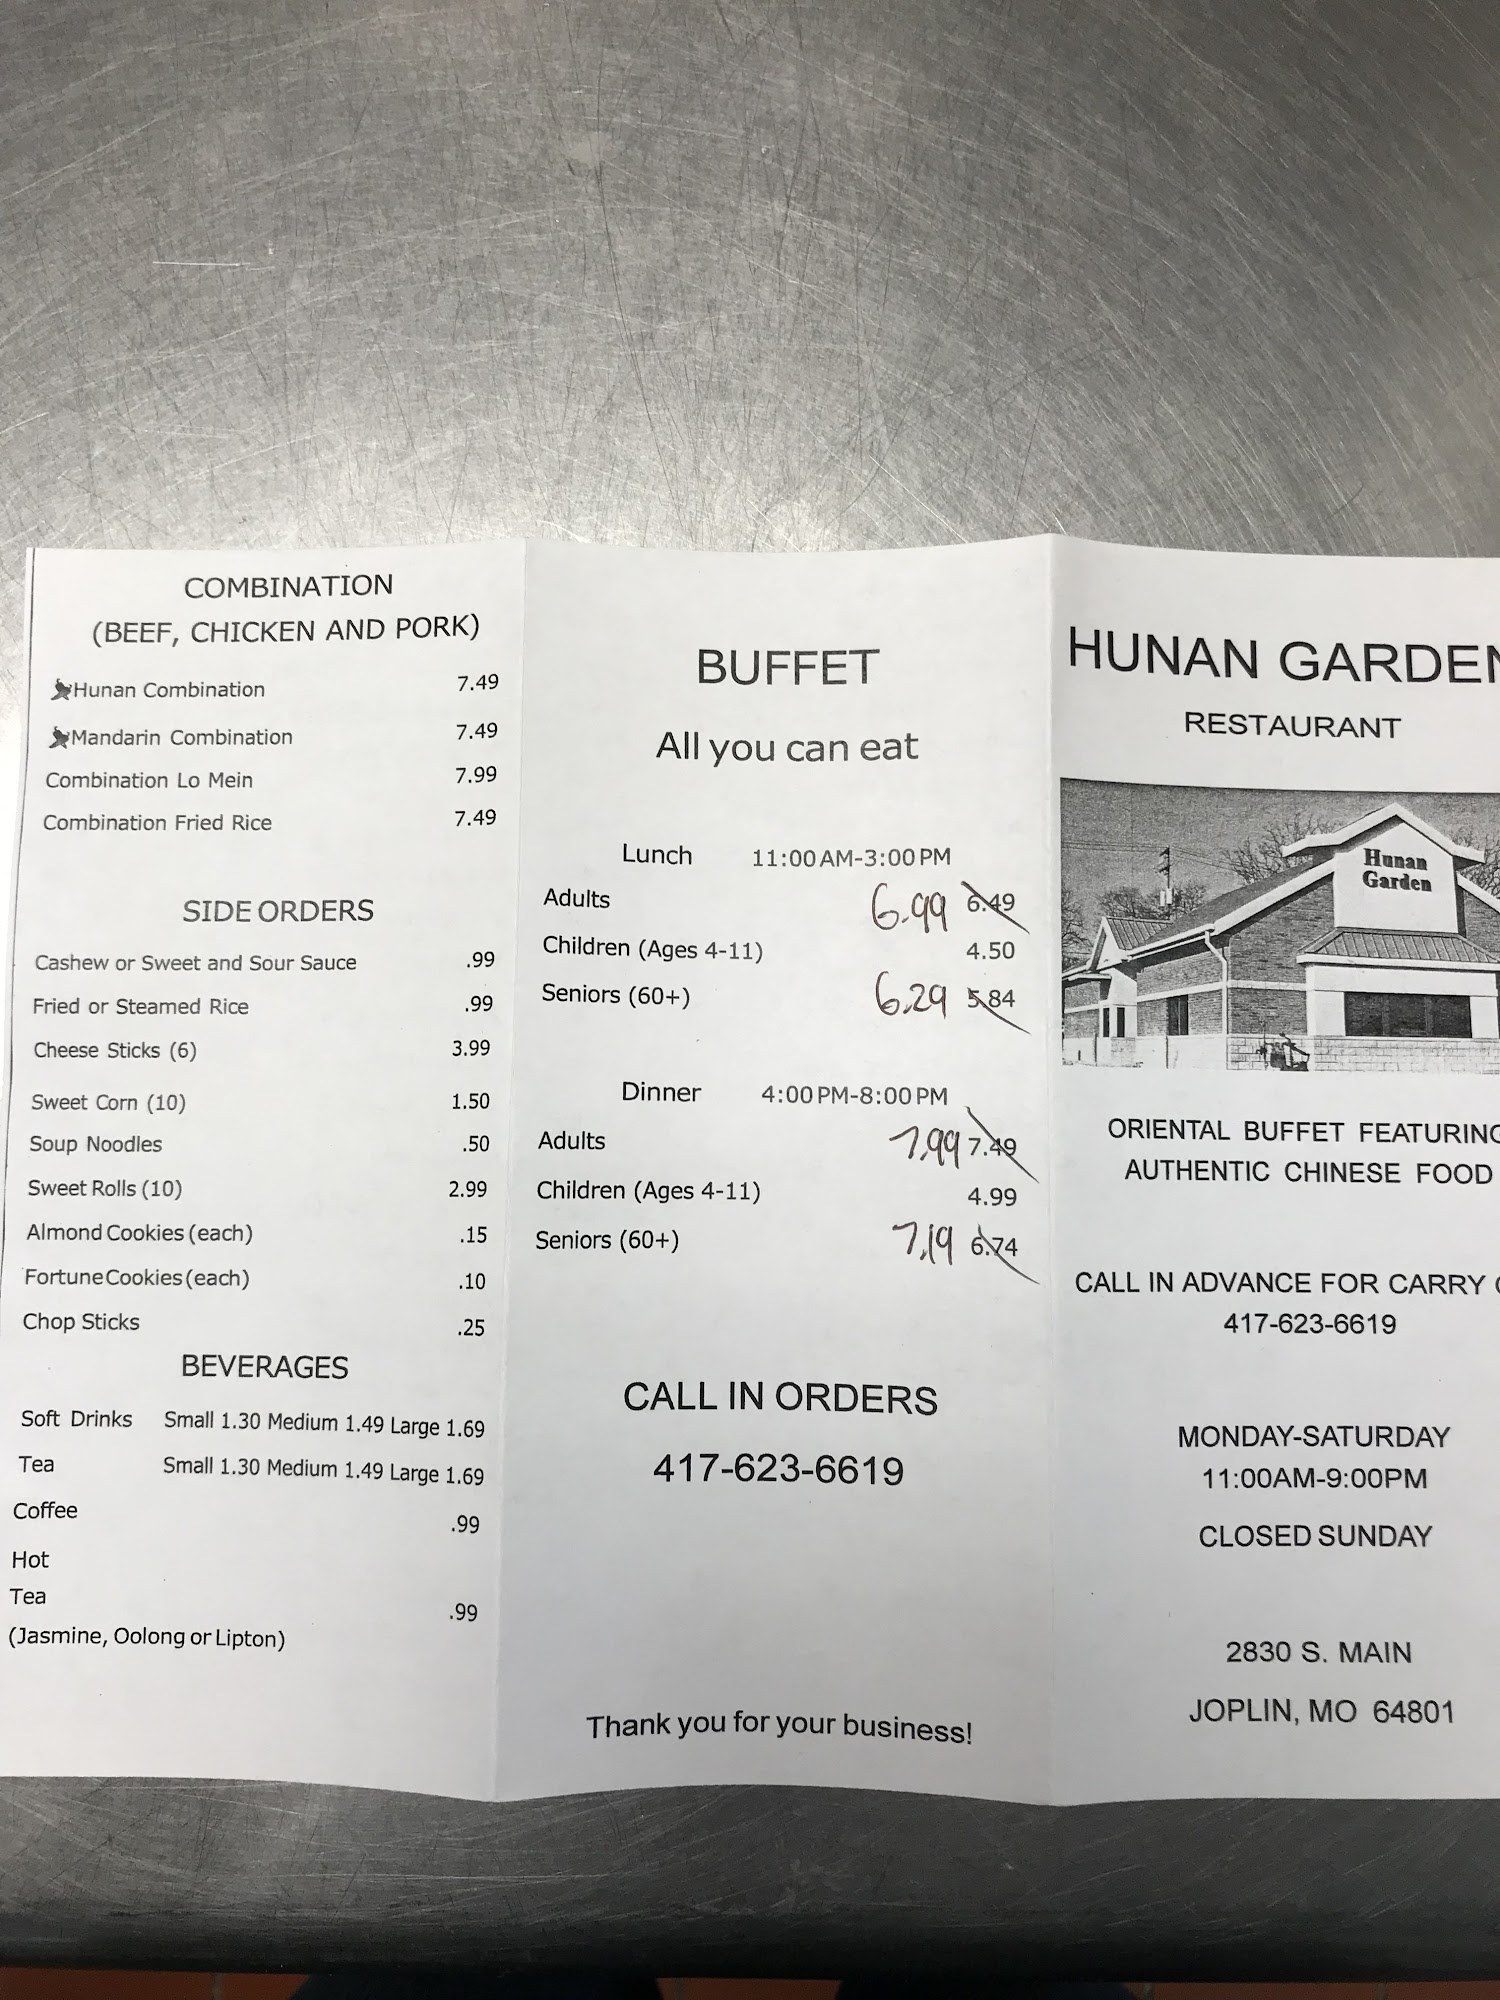 COMBINATION
(BEEF, CHICKEN AND PORK)
Hunan Combination 7.49
Mandarin Combination 7.49
Combination Lo Mein 7.99
Combination Fried Rice 7.49
SIDE ORDERS
Cashew or Sweet and Sour Sauce .99
Fried or Steamed Rice .99
Cheese Sticks (6) 3.99
Sweet Corn (10) 1.50
Soup Noodles .50
Sweet Rolls (10) 2.99
Almond Cookies (each) .15
Fortune Cookies (each) .10
Chop Sticks .25
BEVERAGES
Soft Drinks Small 1.30 Medium 1.49 Large 1.69
Tea Small 1.30 Medium 1.49 Large 1.69
Coffee .99
Hot
Tea .99
(Jasmine, Oolong or Lipton)
BUFFET
All you can eat
Lunch 11:00 AM-3:00 PM
Adults 6.99 6.49
Children (Ages 4-11) 4.50
Seniors (60+) 6.29 5.84
Dinner 4:00 PM-8:00 PM
Adults 7.99 7.49
Children (Ages 4-11) 4.99
Seniors (60+) 7.19 6.74
CALL IN ORDERS
417-623-6619
Thank you for your business!
HUNAN GARDEN
RESTAURANT
Hunan
Garden
ORIENTAL BUFFET FEATURING
AUTHENTIC CHINESE FOOD
CALL IN ADVANCE FOR CARRY
417-623-6619
MONDAY-SATURDAY
11:00AM-9:00PM
CLOSED SUNDAY
2830 S. MAIN
JOPLIN, MO 64801